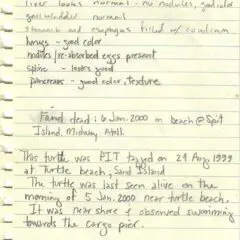 liver looks normal - no nodules, good color
gall bladder normal
stomach and esophagus filled w/
lungs - good color
nodules/re-absorbed eggs present
spine - looks good
pancreas - good color, texture
Found dead: 6 Jan. 2000 on beach @ Spit
Island, Midway Atoll.
This turtle was PIT tagged on 24 Aug 1999
at Turtle beach, Sand Island
The turtle was last seen alive on the
morning of 5 Jan. 2000 near turtle beach.
It was near shore & observed swimming
towards the cargo pier.